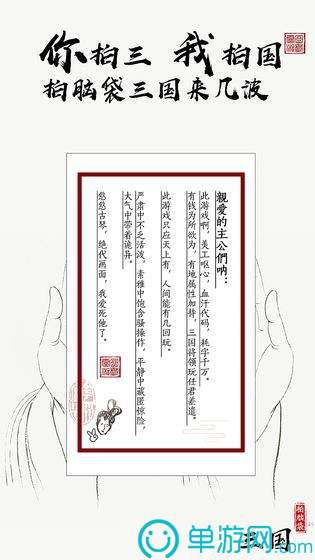 你拍三 我拍国
拍脑袋三国来几波
親愛的主公們吶：
此游戏啊，美工呕心，血汗代码，耗字千万。
有钱为所欲为，有地属性加持，三国将领玩任君差遣。
此游戏只应天上有，人间能有几回玩。
严肃中不乏活泼，素雅中饱含骚操作，平静中藏匿惊险，
大气中带着诡异。
悠悠古琴，绝代画面，我爱死他了。
拍脑袋
单游网
www.danyou.com